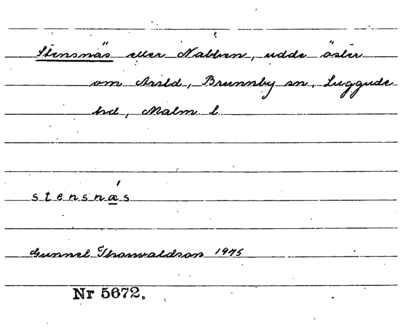 Stensnäs eller Nabben, udde öster
om Arild, Brunnby sn, Luggude
hd, Malm l
stensnæ's
Gunnel Thorwaldson 1975
Nr 5672.